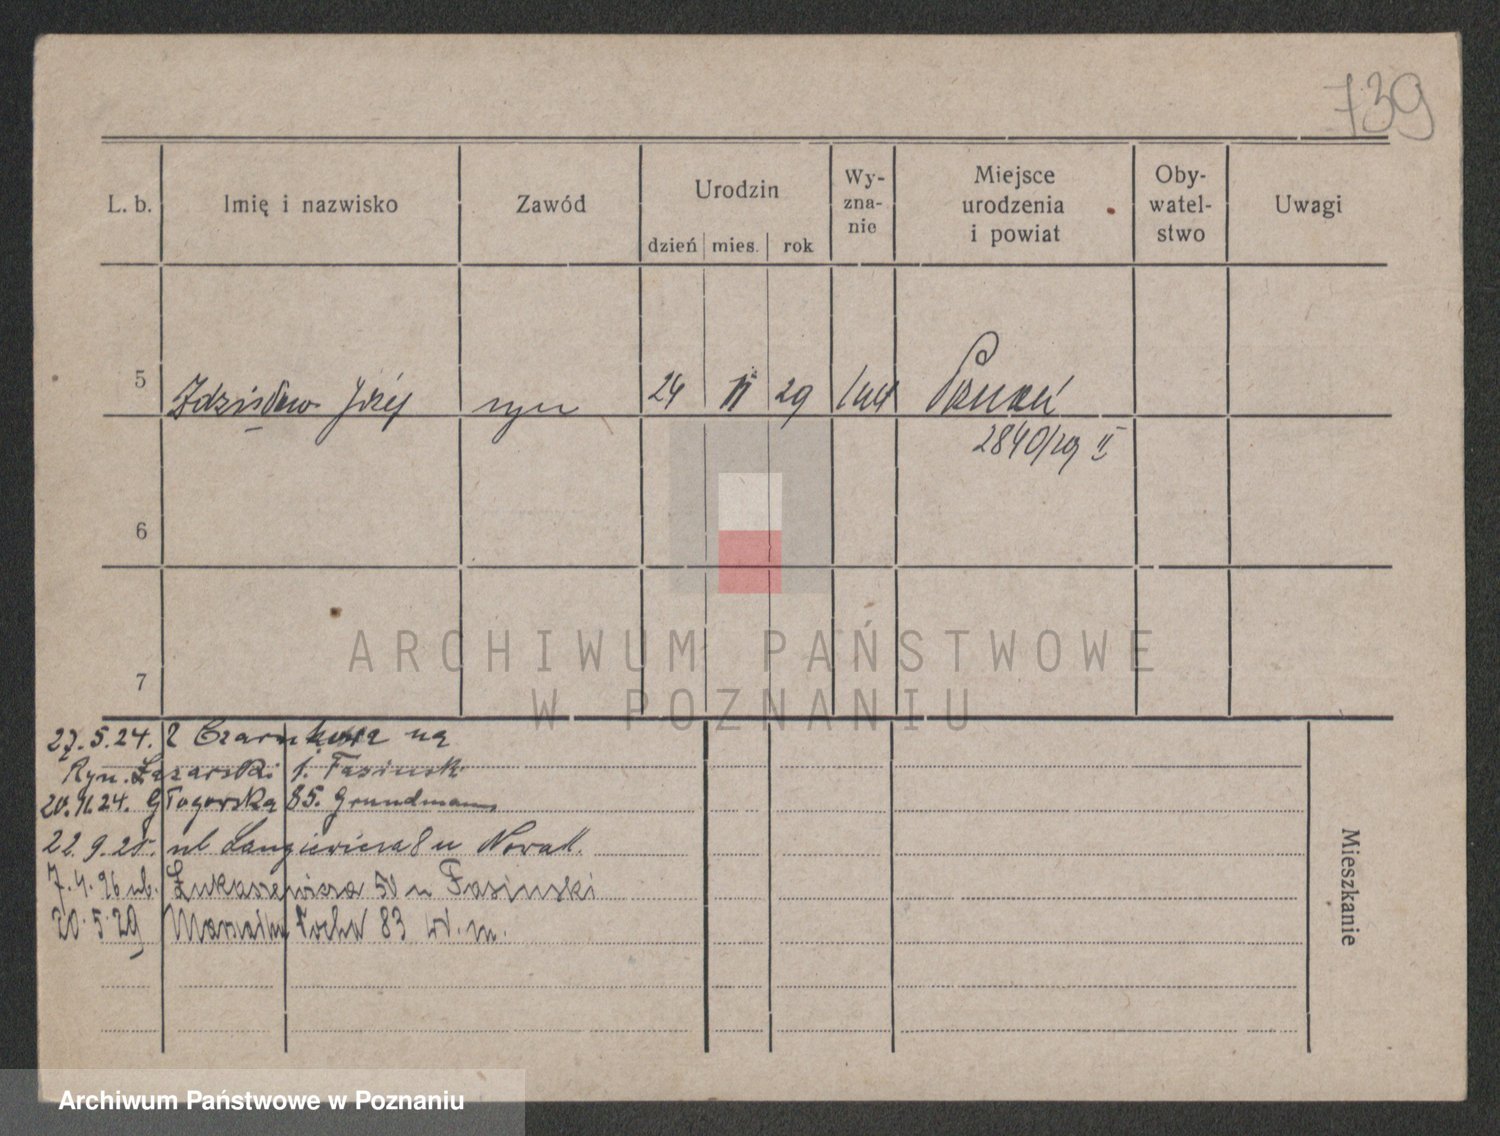 739
L. b. Imię i nazwisko Zawód Urodzin dzień mies. rok Wy-zna-nie Miejsce urodzenia i powiat Oby-watel-stwo Uwagi
5 Zdzisław Józef syn 24 29 Poznań
2840/29 II
6
7
27.5.24. z Czarnkowa na
Ryn. Łazarski 1. Fasinski
20.11.24. Głogowska 85. Grundmann
22.9.25. ul Langiewicza 8 u Nowak.
7.4.26 ul. Łukaszewicza 50 u Fasinski
20.5.29 Marszałka Focha 83 wł. m.
Mieszkanie
ARCHIWUM PAŃSTWOWE
W POZNANIU
Archiwum Państwowe w Poznaniu